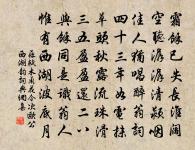 霜餘已失長淮闊
空聽潺潺清潁咽
佳人猶唱醉翁詞
四十三年如電抹
草頭秋露流珠滑
三五盈盈還二八
與餘同是識翁人
惟有西湖波底月
蘇軾木蘭花令次歐公
西湖韻詞